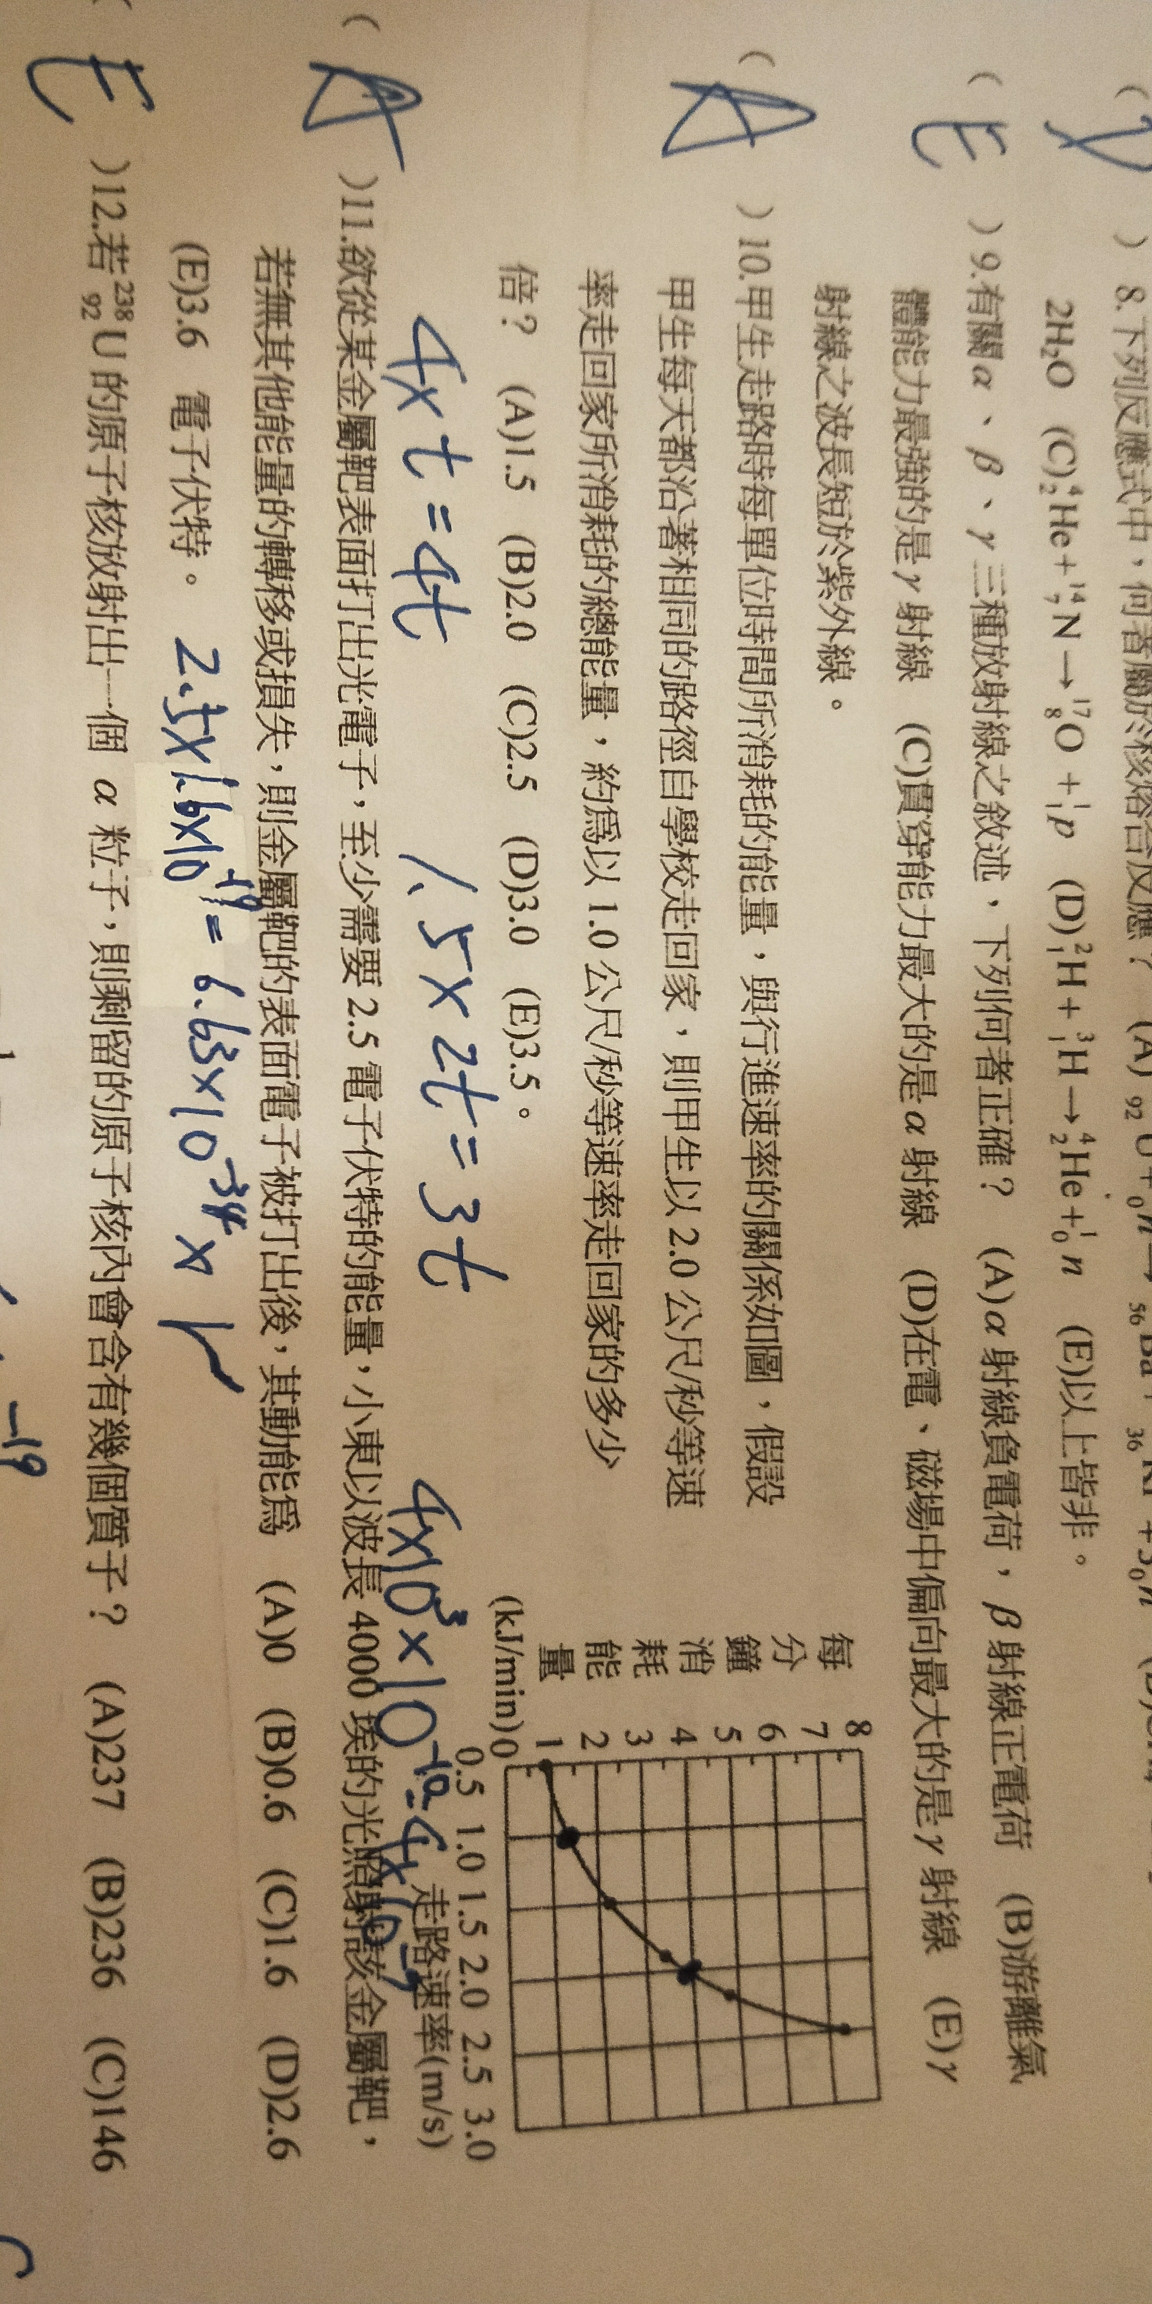 ( D ) 8.下列反應式中，何者屬於核熔合反應？ (A)
2H₂O (C)⁴₂He+¹⁴₇N→¹⁷₈O+¹₁p (D)²₁H+³₁H→⁴₂He+¹₀n (E)以上皆非。
( E ) 9.有關α、β、γ三種放射線之敘述，下列何者正確？ (A)α射線負電荷，β射線正電荷 (B)游離氣
體能力最強的是γ射線 (C)貫穿能力最大的是α射線 (D)在電、磁場中偏向最大的是γ射線 (E)γ
射線之波長短於紫外線。
( A ) 10.甲生走路時每單位時間所消耗的能量，與行進速率的關係如圖，假設
甲生每天都沿著相同的路徑自學校走回家，則甲生以2.0公尺/秒等速
率走回家所消耗的總能量，約為以1.0公尺/秒等速率走回家的多少
倍？ (A)1.5 (B)2.0 (C)2.5 (D)3.0 (E)3.5。
每分鐘消耗能量
(kJ/min)
8
7
6
5
4
3
2
1
0
0.5 1.0 1.5 2.0 2.5 3.0
走路速率(m/s)
4×t=4t 1.5×2t=3t 4×10³×10⁻¹⁰=4×10⁻⁷
( A )11.欲從某金屬靶表面打出光電子，至少需要2.5電子伏特的能量，小東以波長4000埃的光照射該金屬靶，
若無其他能量的轉移或損失，則金屬靶的表面電子被打出後，其動能為 (A)0 (B)0.6 (C)1.6 (D)2.6
(E)3.6 電子伏特。 2.5×1.6×10⁻¹⁹=6.63×10⁻³⁴×
( E )12.若²³⁸₉₂U的原子核放射出一個α粒子，則剩留的原子核內會含有幾個質子？ (A)237 (B)236 (C)146
-19